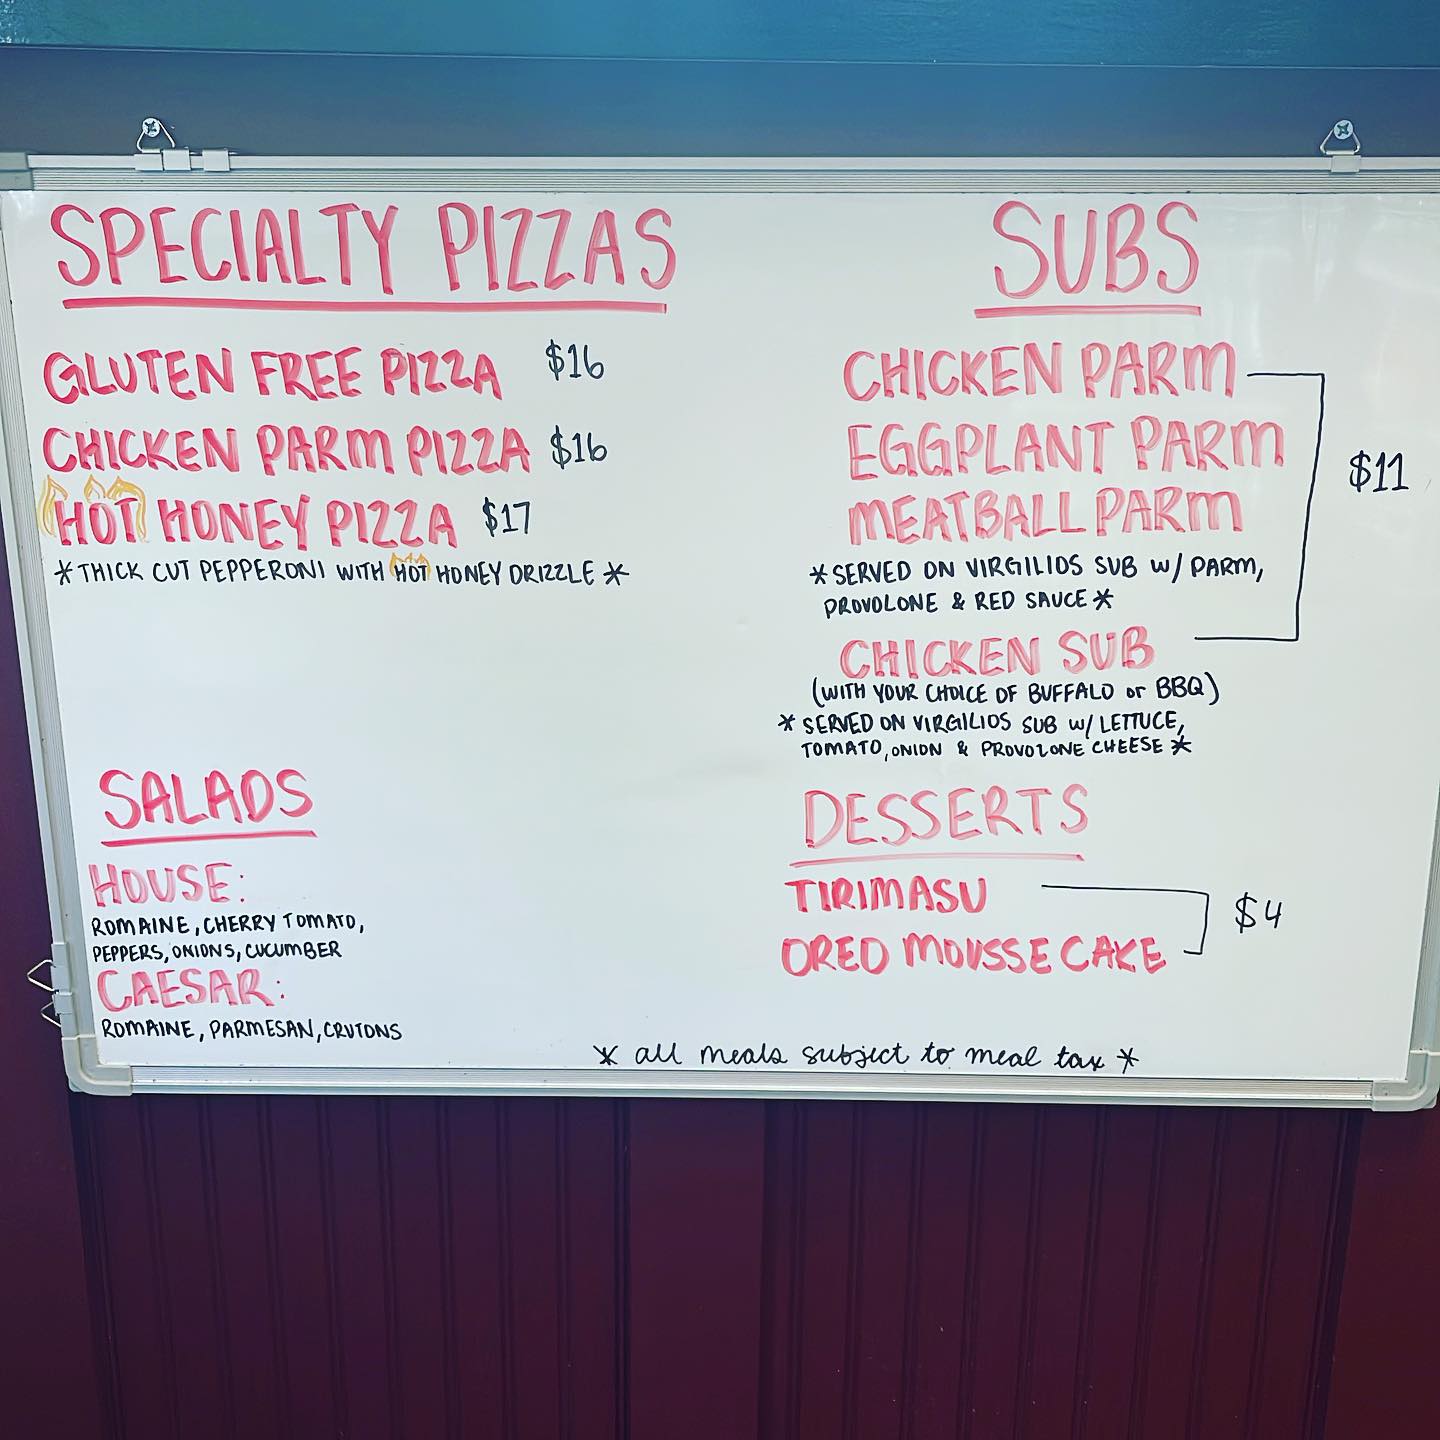 SPECIALTY PIZZAS
GLUTEN FREE PIZZA $16
CHICKEN PARM PIZZA $16
HOT HONEY PIZZA $17
*THICK CUT PEPPERONI WITH HOT HONEY DRIZZLE*
SALADS
HOUSE:
ROMAINE, CHERRY TOMATO,
PEPPERS, ONIONS, CUCUMBER
CAESAR:
ROMAINE, PARMESAN, CRUTONS
SUBS
CHICKEN PARM
EGGPLANT PARM
$11
MEATBALL PARM
*SERVED ON VIRGILIOS SUB W/ PARM,
PROVOLONE & RED SAUCE*
CHICKEN SUB
(WITH YOUR CHOICE OF BUFFALO or BBQ)
* SERVED ON VIRGILIOS SUB W/ LETTUCE,
TOMATO, ONION & PROVOLONE CHEESE*
DESSERTS
TIRIMASU
$4
OREO MOUSSE CAKE
* all meals subject to meal tax *